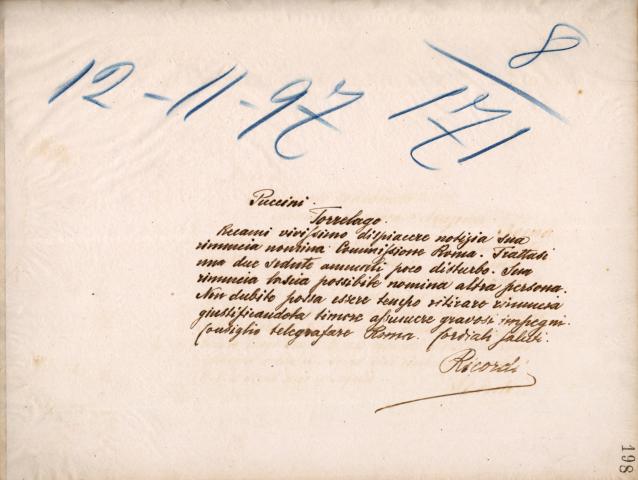 12-11-97 8/171
Puccini.
Torrelago.
Recami vivissimo dispiacere notizia Sua
rinuncia nomina Commissione Roma. Trattasi
una due sedute annuali poco disturbo. Sua
rinuncia lascia possibile nomina altra persona.
Non dubito possa essere tempo ritirare rinuncia
giustificandola timore assumere gravosi impegni.
Consiglio telegrafare Roma. Cordiali saluti.
Ricordi
198